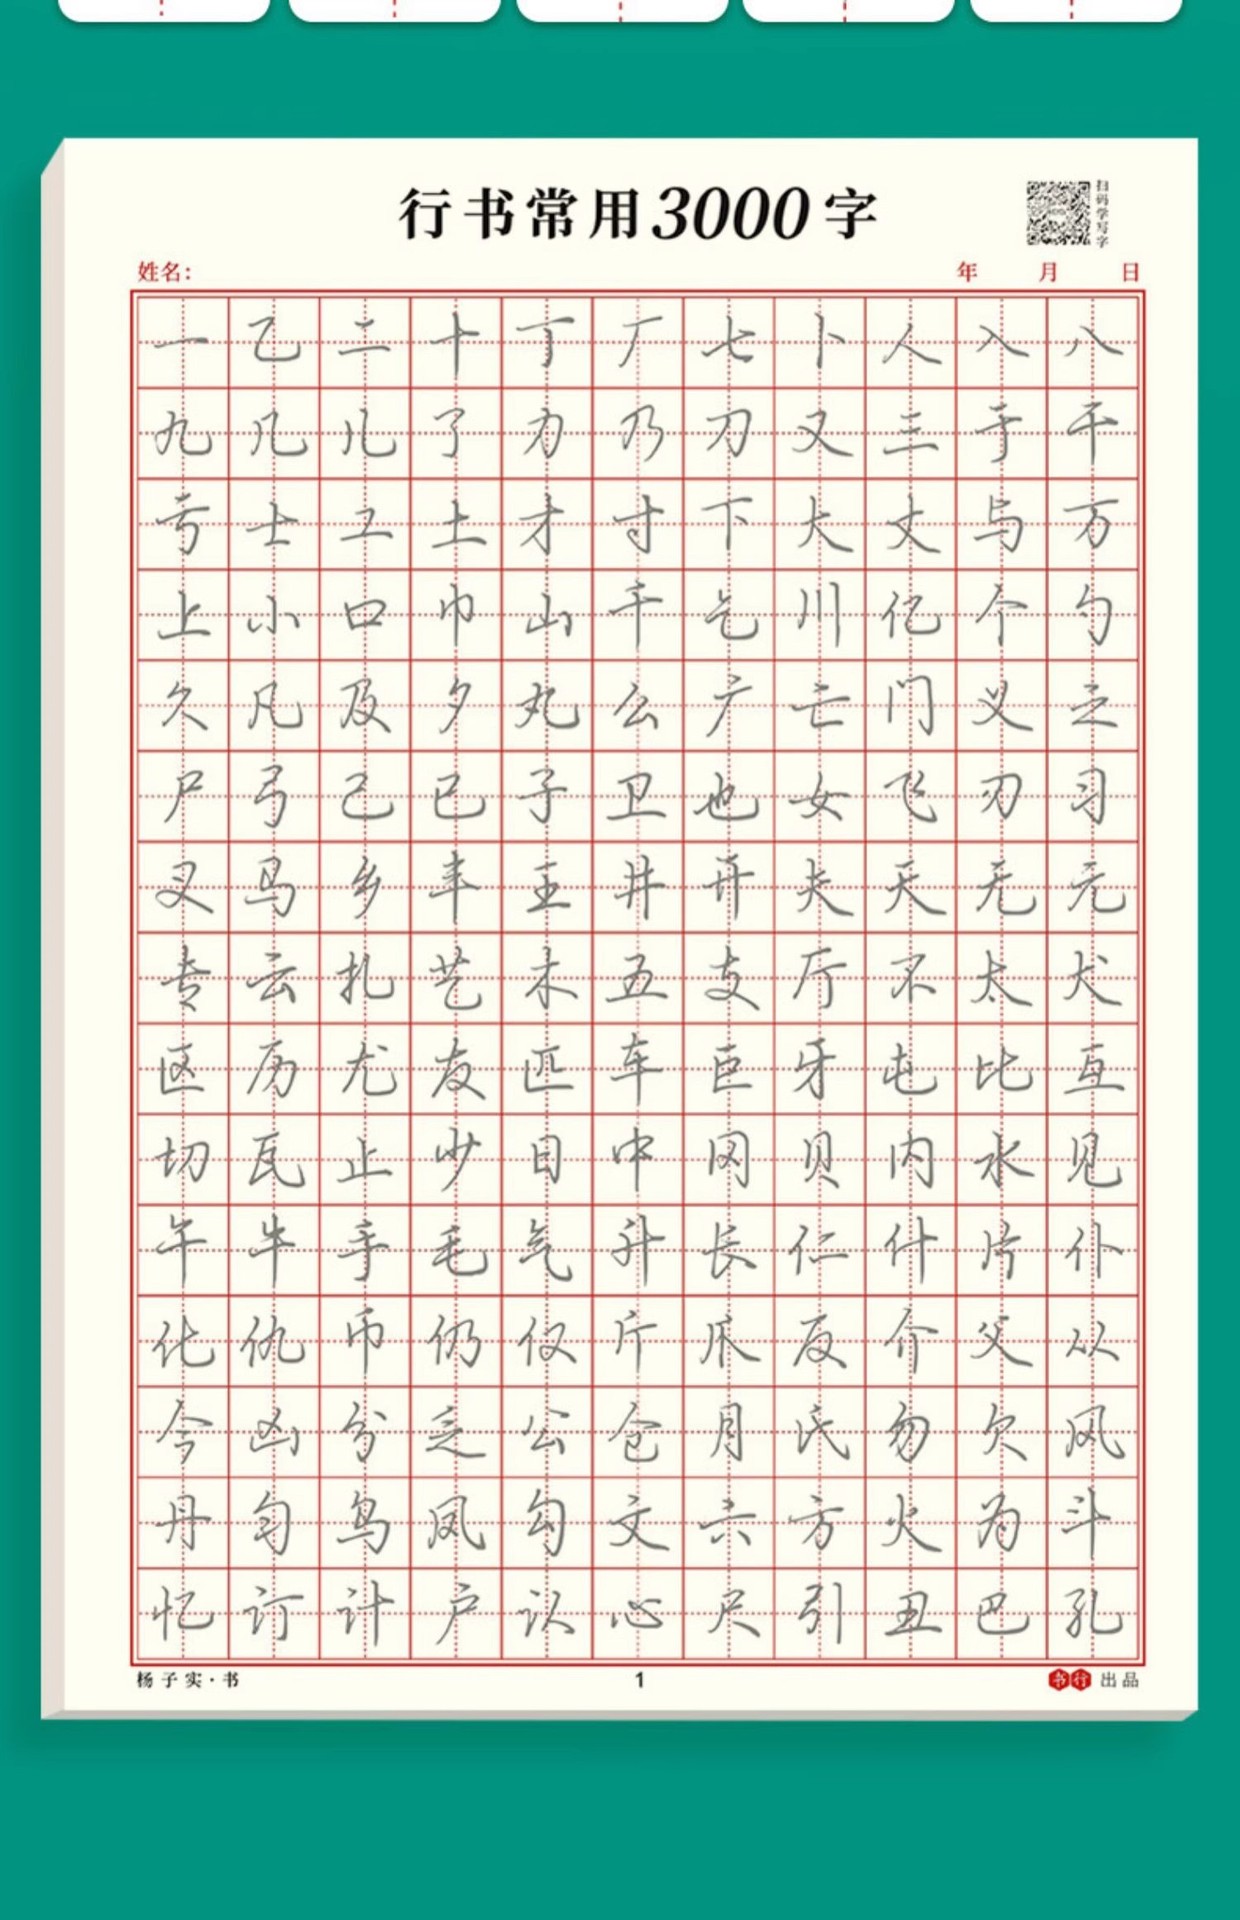 行书常用3000字
扫码学写字
姓名： 年 月 日
一 乙 二 十 丁 厂 七 卜 人 入 八
九 几 儿 了 力 乃 刀 又 三 于 干
亏 士 工 土 才 寸 下 大 丈 与 万
上 小 口 巾 山 千 乞 川 亿 个 勺
久 凡 及 夕 丸 么 广 亡 门 义 之
尸 弓 己 已 子 卫 也 女 飞 刃 习
叉 马 乡 丰 王 井 开 夫 天 无 元
专 云 扎 艺 木 五 支 厅 不 太 犬
区 历 尤 友 匹 车 巨 牙 屯 比 互
切 瓦 止 少 日 中 冈 贝 内 水 见
午 牛 手 毛 气 升 长 仁 什 片 仆
化 仇 币 仍 仅 斤 爪 反 介 父 从
今 凶 分 乏 公 仓 月 氏 勿 欠 风
丹 匀 乌 凤 勾 文 六 方 火 为 斗
忆 订 计 户 认 心 尺 引 丑 巴 孔
杨子实·书 1 书行 出品